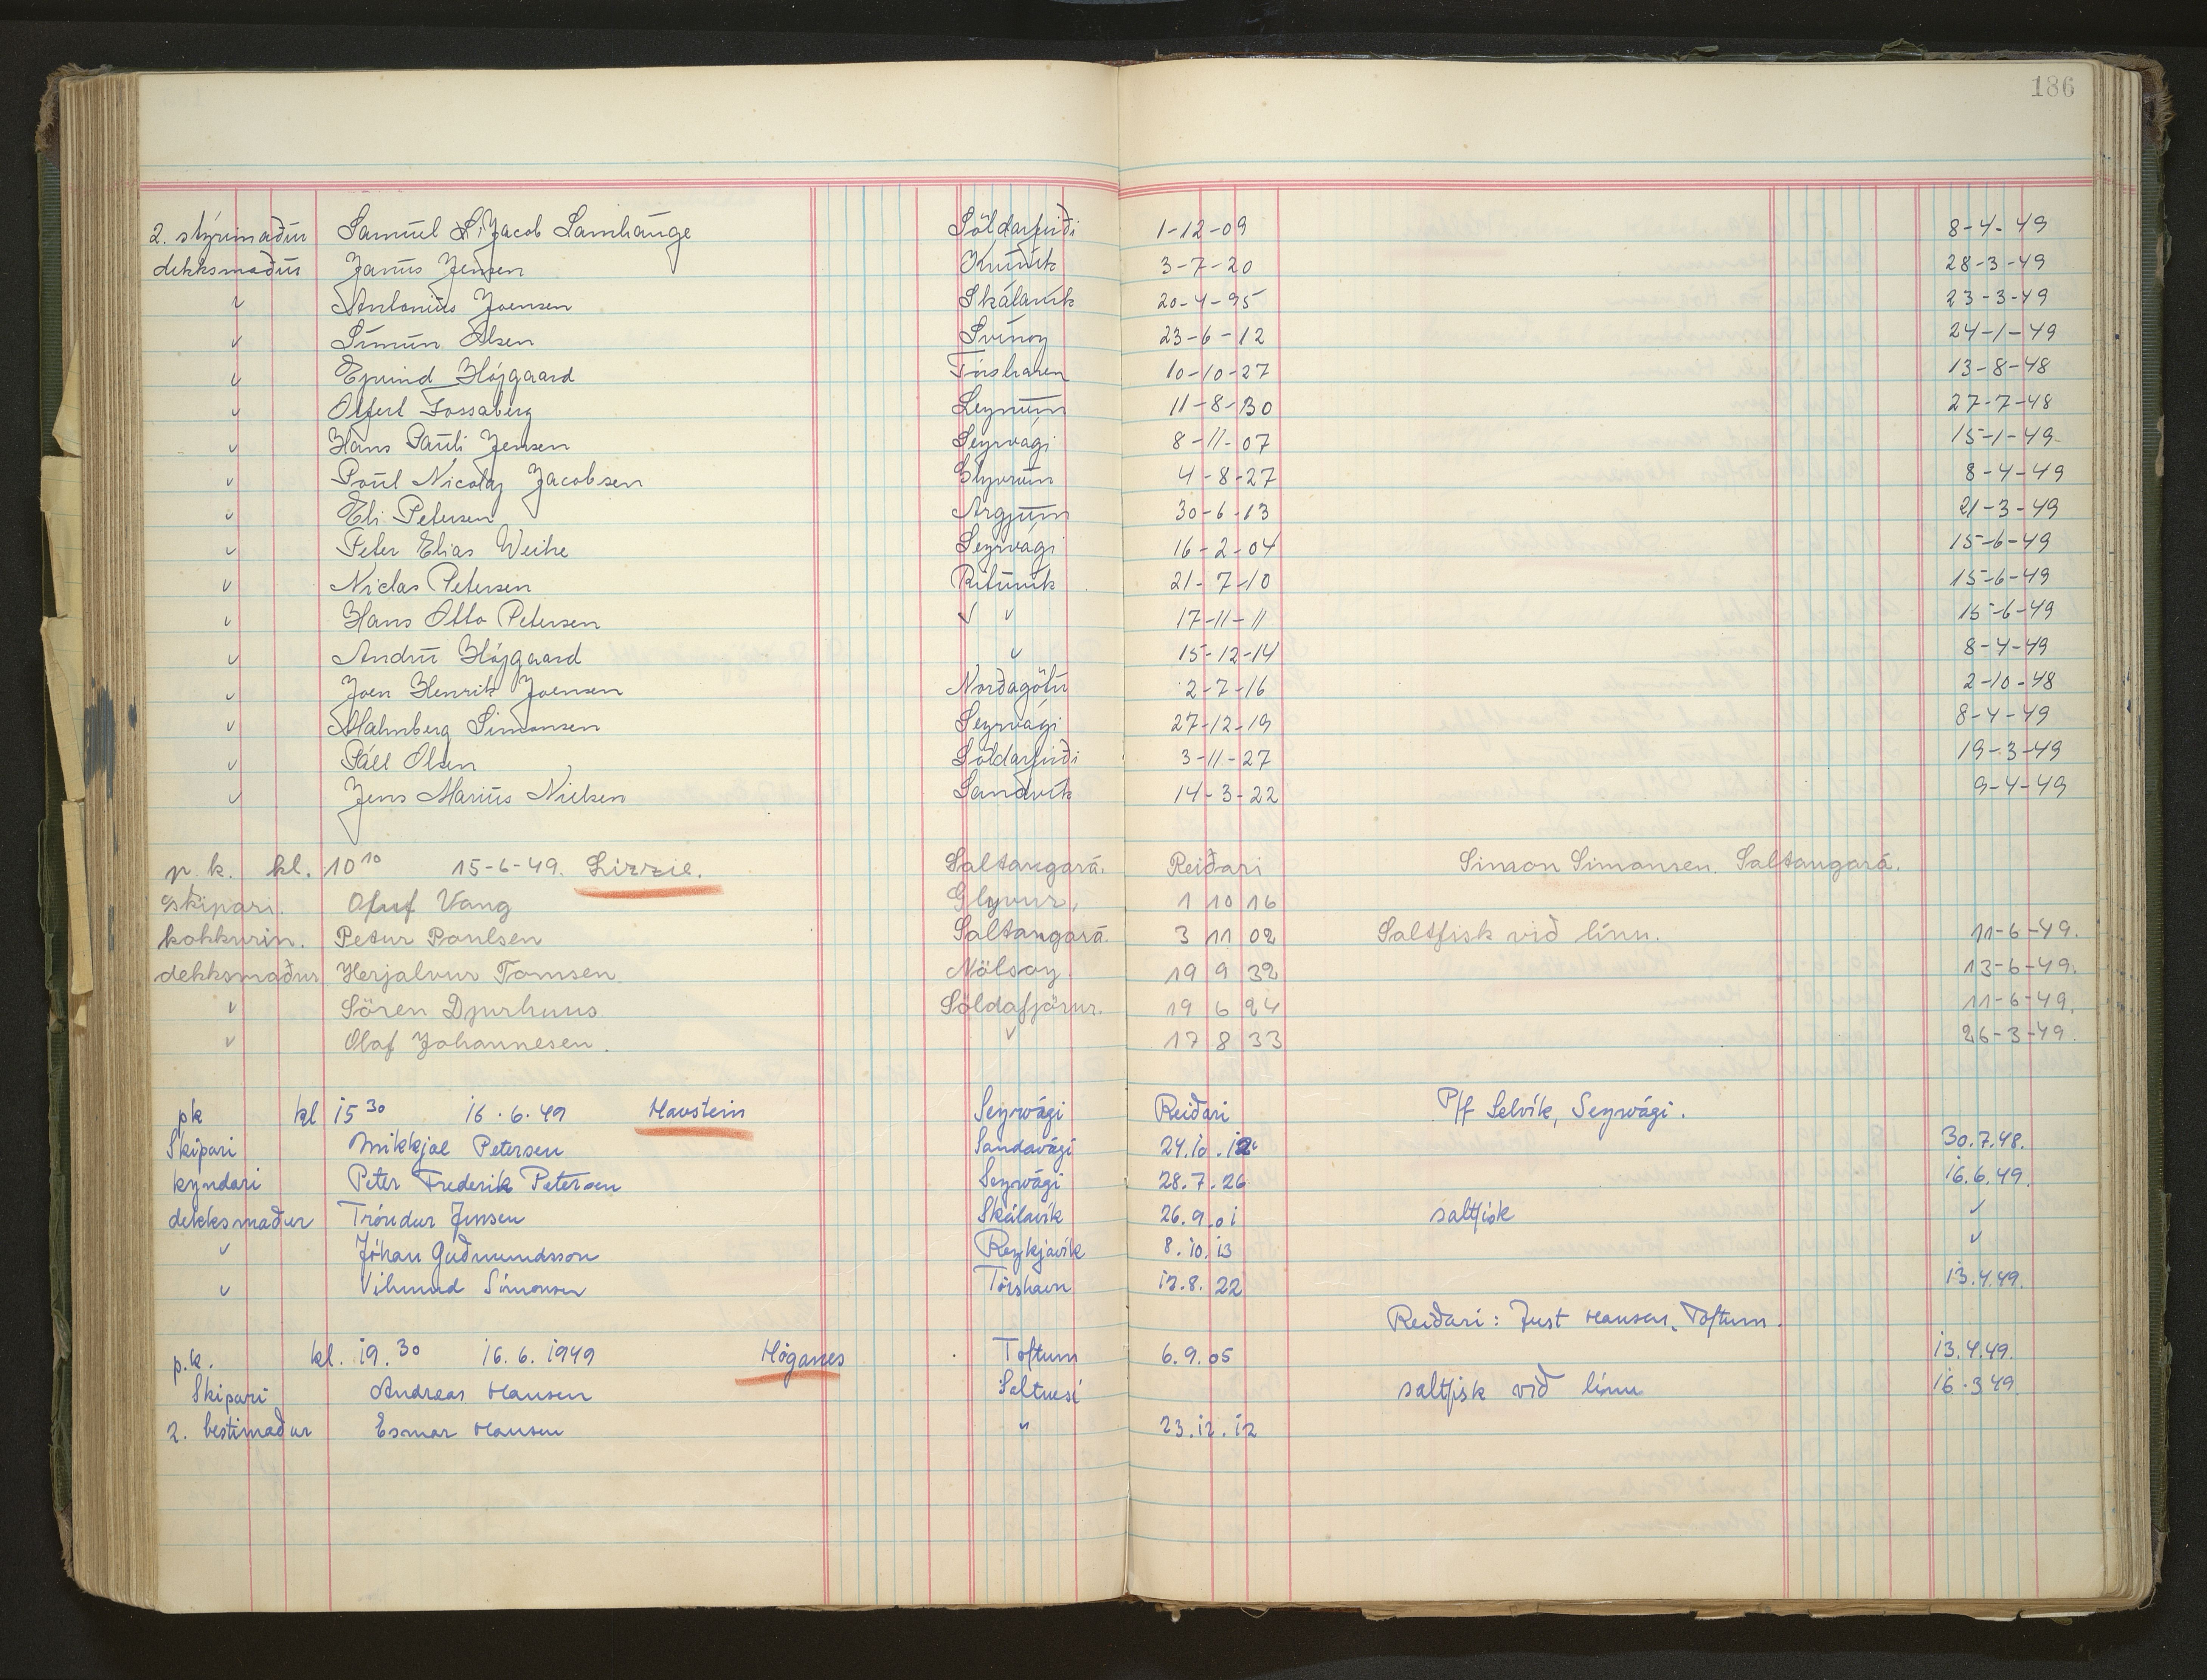 186
2. stýrimaður Samuel Jacob Lamhauge Söldarfirði 1-12-09 8-4-49
dekksmaður Janus Jensen 3-7-20 28-3-49
" Antonius Joensen Skálavík 20-4-95 23-3-49
" Simun Olsen Svinoy 23-6-12 24-1-49
" Ejvind Højgaard Tórshavn 10-10-27 13-8-48
" Fossaberg Leynum 11-8-30 27-7-48
" Hans Pauli Jensen Seyrvági 8-11-07 15-1-49
" Poul Nicolaj Jacobsen Glyvrum 4-8-27 8-4-49
" Eli Petersen Argjum 30-6-13 21-3-49
" Peter Elias Weihe Seyrvági 16-2-04 15-6-49
" Niclas Petersen Rituvík 21-7-10 15-6-49
" Hans Otto Petersen " " 17-11-11 15-6-49
" Andru Højgaard " 15-12-14 8-4-49
" Joen Henrik Joensen Norðagøtu 2-7-16 2-10-48
" Malmberg Simonsen Seyrvági 27-12-19 8-4-49
" Páll Olsen Söldarfirði 3-11-27 19-3-49
" Jens Marius Nielsen Sandvík 14-3-22 9-4-49
p. k. kl. 10¹⁰ 15-6-49. Lizzie. Saltangará. Reiðari Simon Simonsen. Saltangará.
Skipari. Vang Glyvur, 1 10 16
kokkurin. Petur Poulsen Saltangará 3 11 02 Saltfisk við línu. 11-6-49.
dekksmaður Herjalvur Tomsen Nölsoy 19 9 32 13-6-49.
" Sören Djurhuus Söldafjörur. 19 6 24 11-6-49.
" Olaf Johannesen. " 17 8 33 26-3-49.
pk kl 15³⁰ 16.6.49 Havstein Seyrvági Reiðari P/f Selvík, Seyrvági.
Skipari Mikkjal Petersen Sandavági 24.10.12 30.7.48.
kyndari Peter Frederik Petersen Seyrvági 28.7.26 16.6.49.
dekksmaður Tróndur Jensen Skálavík 26.9.01 saltfisk "
" Jóhan Guðmundsson Reykjavík 8.10.13 "
" Vilmund Simonsen Tórshavn 12.8.22 13.4.49.
Reiðari: Just Hansen, Toftum.
p.k. kl. 19.³⁰ 16.6.1949 Höganes Toftum 6.9.05 13.4.49.
Skipari Andreas Hansen Saltnesi saltfisk við línu 16.3.49
2. bestimaður Esmar Hansen " 23.12.12